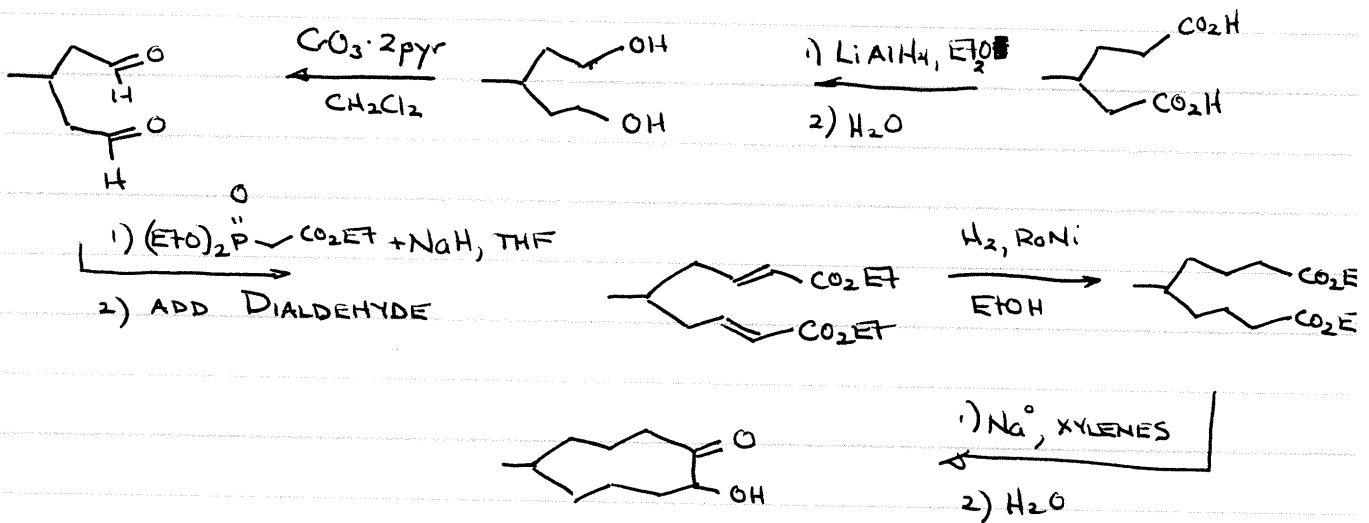 CrO3·2pyr
CH2Cl2
O
H
O
H
OH
OH
1) LiAlH4, Et2O
2) H2O
CO2H
CO2H
O
1) (EtO)2P CO2Et + NaH, THF
2) ADD DIALDEHYDE
CO2Et
CO2Et
H2, RaNi
EtOH
CO2E
CO2E
1) Na°, XYLENES
2) H2O
O
OH